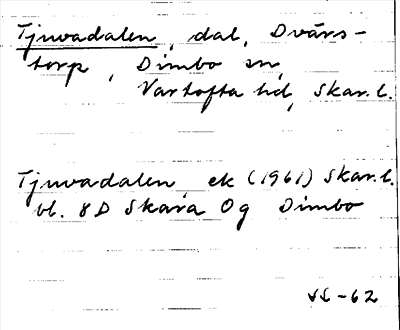 Tjuvadalen, dal, Dvärs-
torp, Dimbo sn,
Vartofta hd, Skar. l.
Tjuvadalen ek (1961) Skar. l.
bl. 8D Skara 0g Dimbo
VL-62